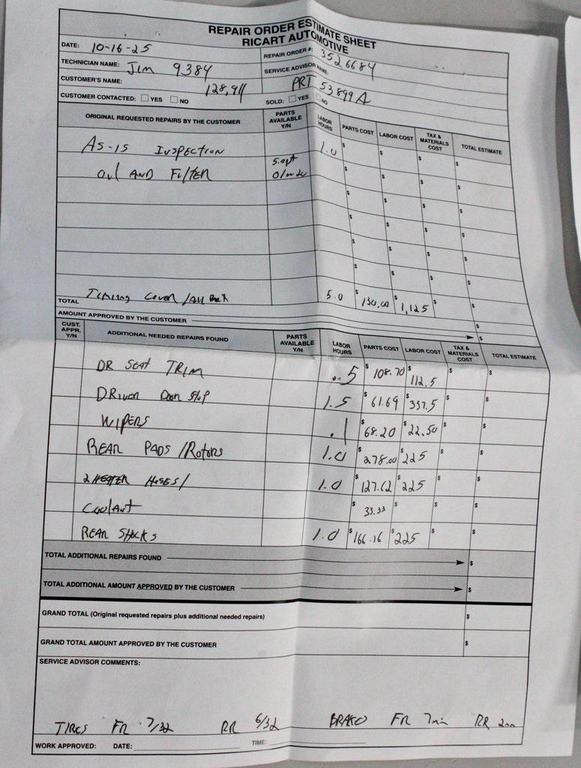 REPAIR ORDER ESTIMATE SHEET
RICART AUTOMOTIVE
DATE: 10-16-25 REPAIR ORDER #: 3526684
TECHNICIAN NAME: Jim 9384 SERVICE ADVISOR NAME:
CUSTOMER'S NAME: 128,911 PRT 53899A
CUSTOMER CONTACTED: YES NO SOLD: YES NO
ORIGINAL REQUESTED REPAIRS BY THE CUSTOMER PARTS AVAILABLE Y/N LABOR HOURS PARTS COST LABOR COST TAX & MATERIALS COST TOTAL ESTIMATE
AS-IS INSPECTION 1.0 $ $ $ $
Oil AND FILTER $ $ $ $
$ $ $ $
$ $ $ $
$ $ $ $
$ $ $ $
Timing Cover / 5.0 $ 130.00 $ 1,125 $ $
TOTAL $
AMOUNT APPROVED BY THE CUSTOMER $
CUST. APPR. Y/N ADDITIONAL NEEDED REPAIRS FOUND PARTS AVAILABLE Y/N LABOR HOURS PARTS COST LABOR COST TAX & MATERIALS COST TOTAL ESTIMATE
DR SEAT TRIM .5 $ 108.70 $ 112.5 $ $
Driver Door Stop 1.5 $ 61.69 $ 337.5 $ $
WIPERS .1 $ 68.20 $ 22.50 $ $
REAR PADS/Rotors 1.0 $ 278.00 $ 225 $ $
2 HEATER HOSES/ 1.0 $ 127.62 $ 225 $ $
Coolant $ 33.33 $ $ $
REAR SHOCKS 1.0 $ 166.16 $ 225 $ $
TOTAL ADDITIONAL REPAIRS FOUND $
TOTAL ADDITIONAL AMOUNT APPROVED BY THE CUSTOMER $
GRAND TOTAL (Original requested repairs plus additional needed repairs) $
GRAND TOTAL AMOUNT APPROVED BY THE CUSTOMER $
SERVICE ADVISOR COMMENTS:
TIRES FR 7/32 RR 6/32 BRAKES FR 7mm RR 2mm
WORK APPROVED: DATE: TIME: